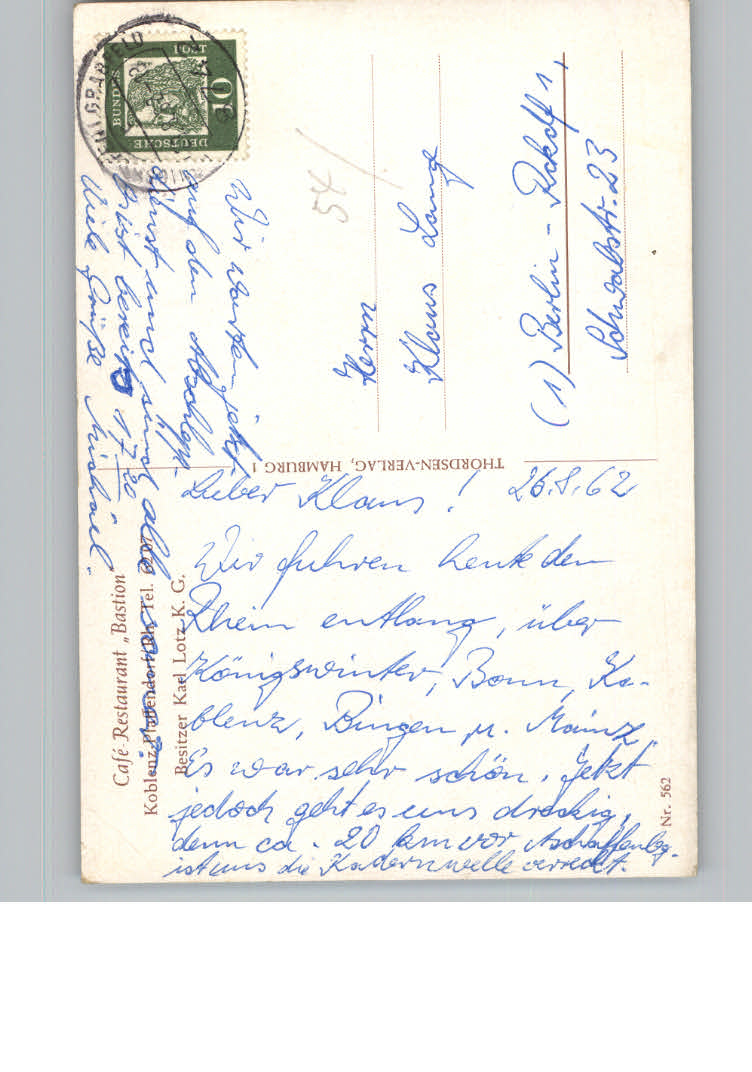 Café-Restaurant „Bastion
Koblenz-Pfaffendorf/Rh. Tel.
Besitzer Karl Lotz K. G.
Nr. 562
THORDSEN-VERLAG, HAMBURG 1
DEUTSCHE
BUNDES
POST
10
54/
Herrn
Klaus Lang
(1) Berlin - Rckdf 1,
Schwalbstr. 23
26.8.62
Lieber Klaus!
Wir fuhren heute den
Rhein entlang, über
Königswinter, Bonn, Ko-
blenz, Bingen n. Mainz
Es war sehr schön. Jetzt
jedoch geht es uns dreckig,
denn ca. 20 km vor Aschaffenbg.
ist uns die Kadernwelle verreckt.
Wir warten jetzt
auf den Abschlepp-
dienst und sind alle sauer.
Es ist bereits 17 20
Viele Grüße Michael.